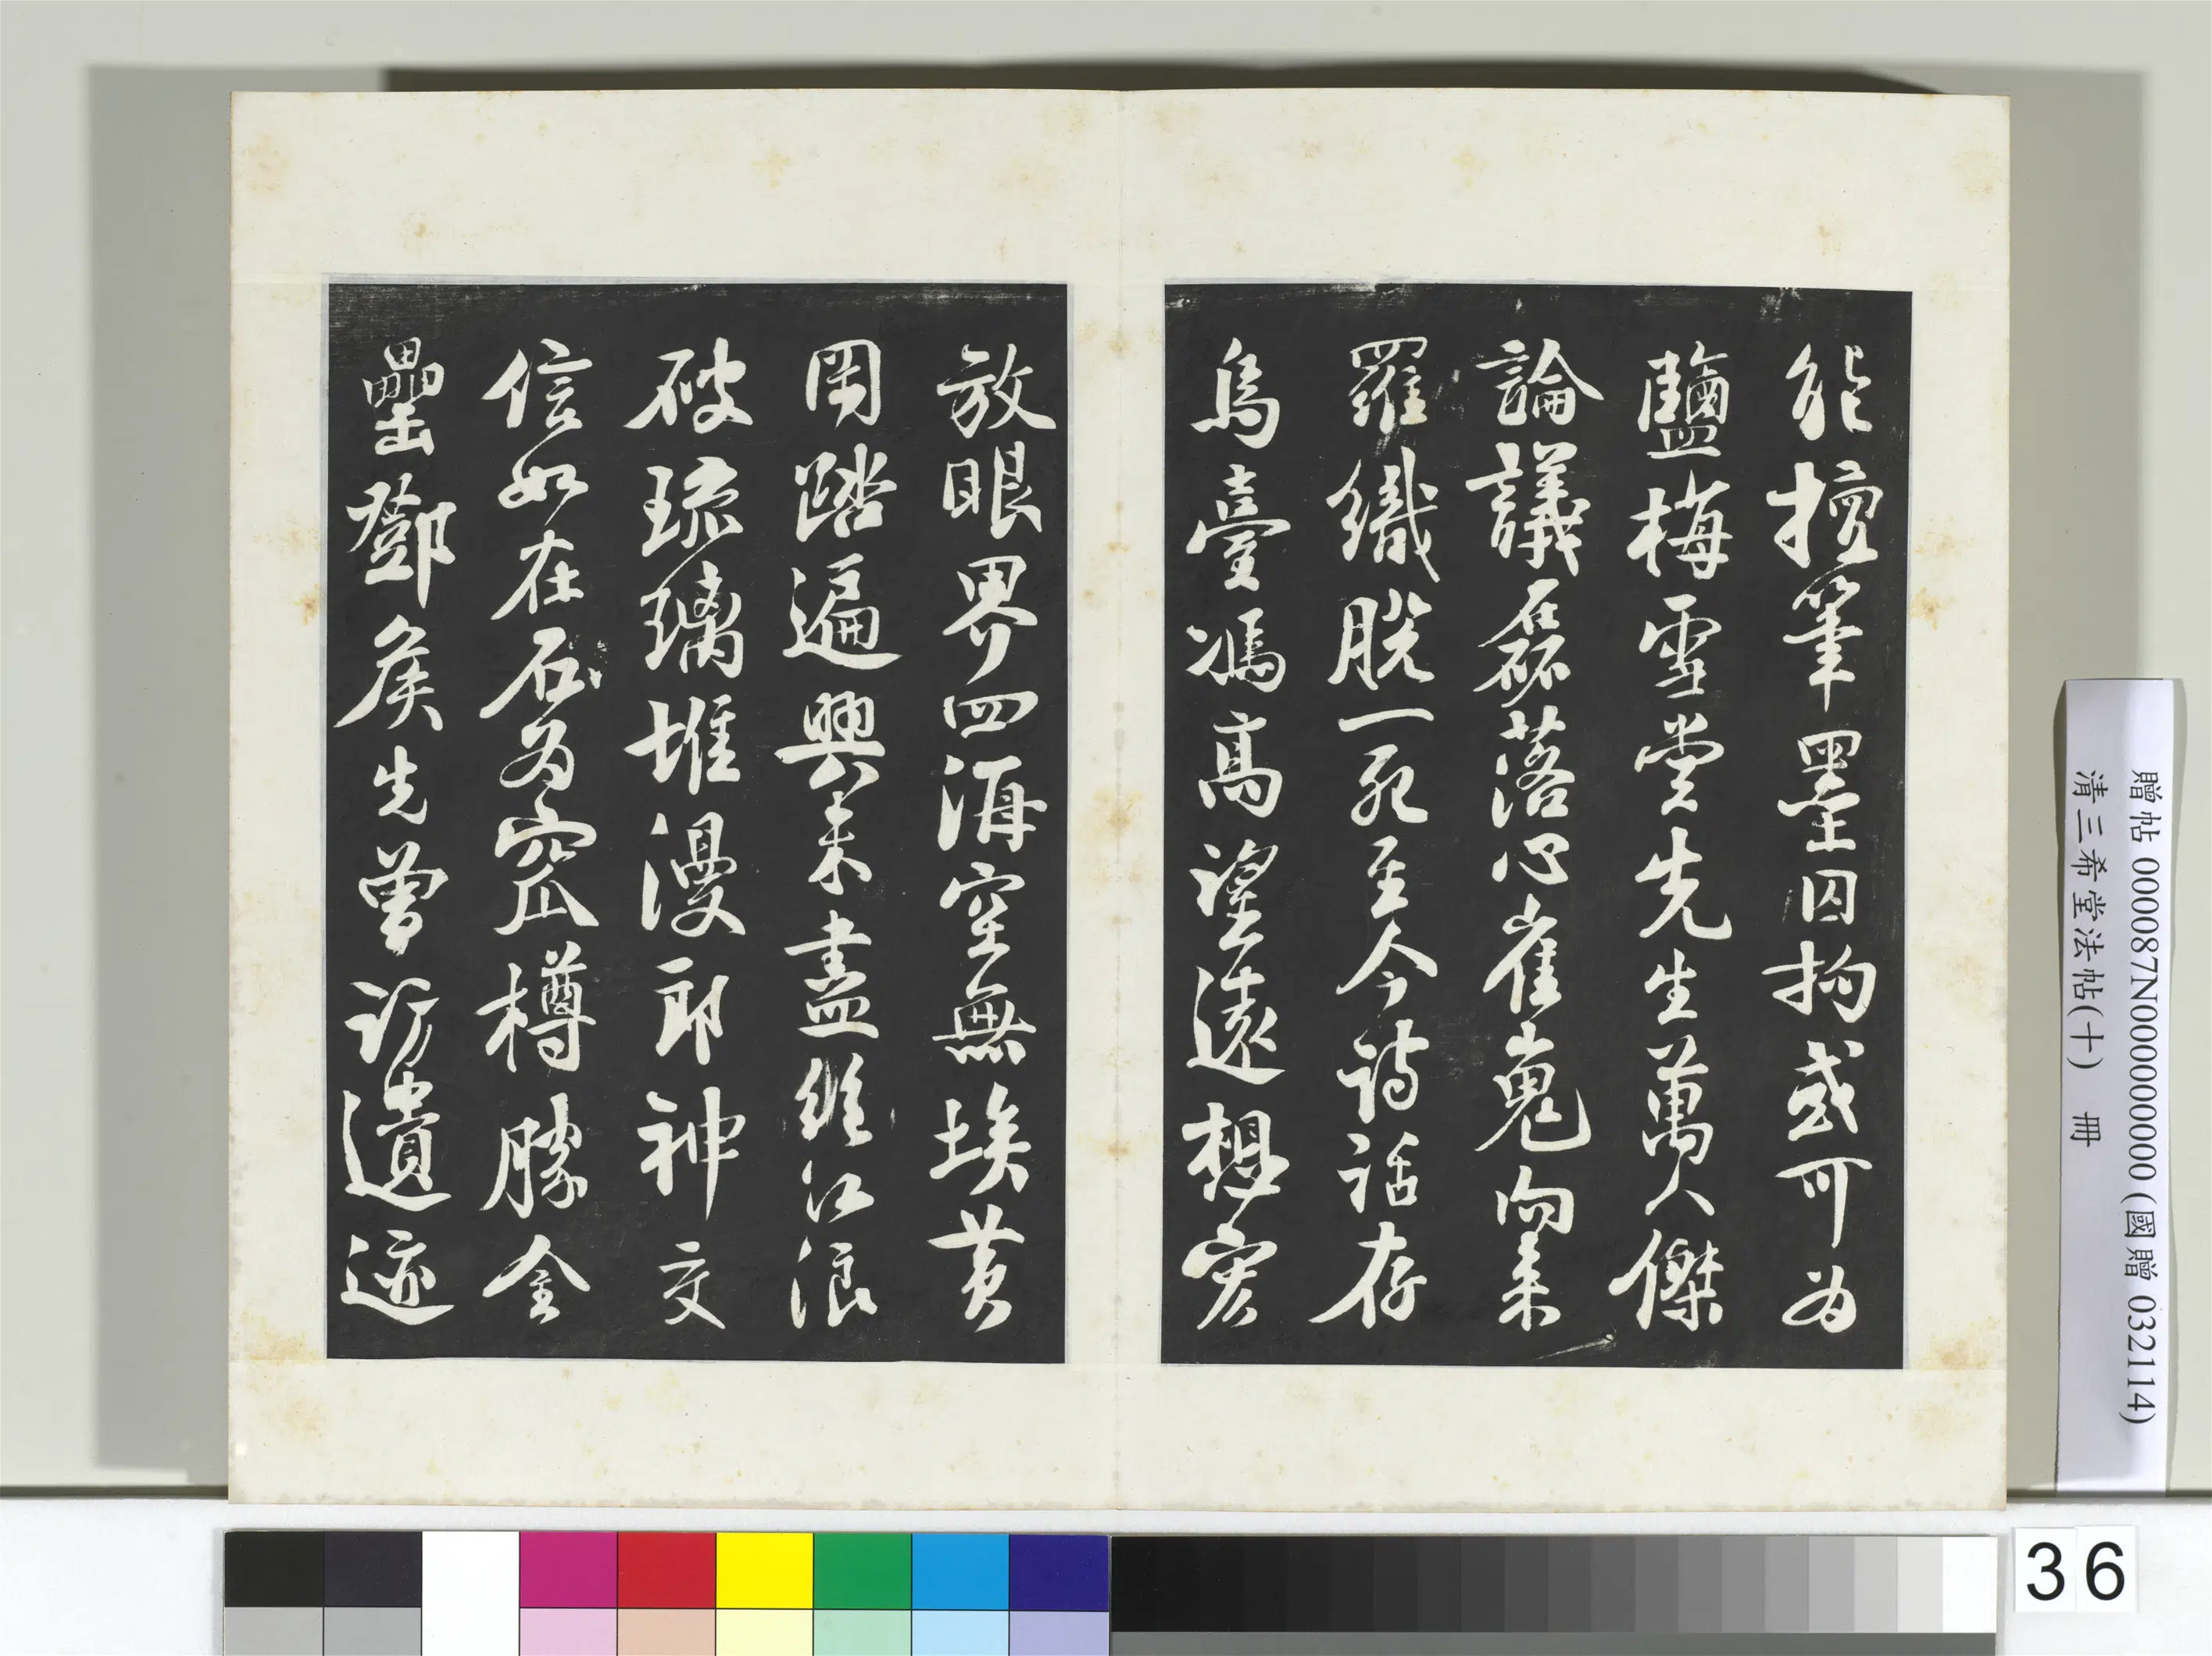 能擅筆墨囚拘或可為
鹽梅雪堂先生萬人傑
論議磊落心崔嵬向來
羅織脫一死至今詩話存
烏臺馮高望遠想宏
放眼界四海空無埃黃
岡踏遍興未盡絕江浪
破琉璃堆漫郎神交
信如在石為窊樽勝金
罍鄧矦先曾訪遺迹
贈帖 000087N000000000 (國贈 032114)
清三希堂法帖(十) 冊
36